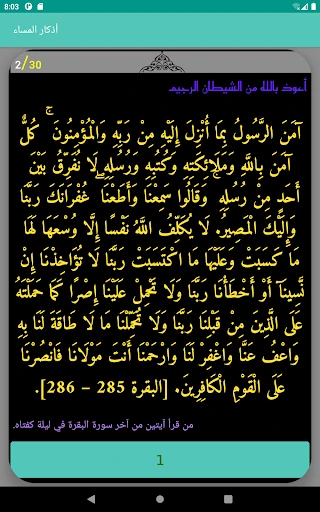 8:03
أذكار المساء
2/30
أعوذ بالله من الشيطان الرجيم
آمَنَ الرَّسُولُ بِمَا أُنْزِلَ إِلَيْهِ مِنْ رَبِّهِ وَالْمُؤْمِنُونَ ۚ كُلٌّ
آمَنَ بِاللَّهِ وَمَلَائِكَتِهِ وَكُتُبِهِ وَرُسُلِهِ لَا نُفَرِّقُ بَيْنَ
أَحَدٍ مِنْ رُسُلِهِ ۚ وَقَالُوا سَمِعْنَا وَأَطَعْنَا ۖ غُفْرَانَكَ رَبَّنَا
وَإِلَيْكَ الْمَصِيرُ. لَا يُكَلِّفُ اللَّهُ نَفْسًا إِلَّا وُسْعَهَا لَهَا
مَا كَسَبَتْ وَعَلَيْهَا مَا اكْتَسَبَتْ رَبَّنَا لَا تُؤَاخِذْنَا إِنْ
نَّسِينَآ أَوْ أَخْطَأْنَا رَبَّنَا وَلَا تَحْمِلْ عَلَيْنَا إِصْرًا كَمَا حَمَلْتَهُ
عَلَى الَّذِينَ مِنْ قَبْلِنَا رَبَّنَا وَلَا تُحَمِّلْنَا مَا لَا طَاقَةَ لَنَا بِهِ
وَاعْفُ عَنَّا وَاغْفِرْ لَنَا وَارْحَمْنَا أَنْتَ مَوْلَانَا فَانْصُرْنَا
عَلَى الْقَوْمِ الْكَافِرِينَ. [البقرة 285 – 286].
من قرأ آيتين من آخر سورة البقرة في ليلة كفتاه.
1